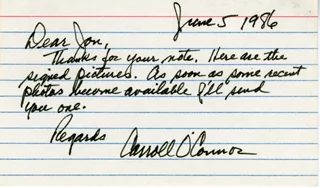 June 5 1986
Dear Jon,
Thanks for your note. Here are the
signed pictures. As soon as some recent
photos become available I'll send
you one.
Regards
Carroll O'Connor